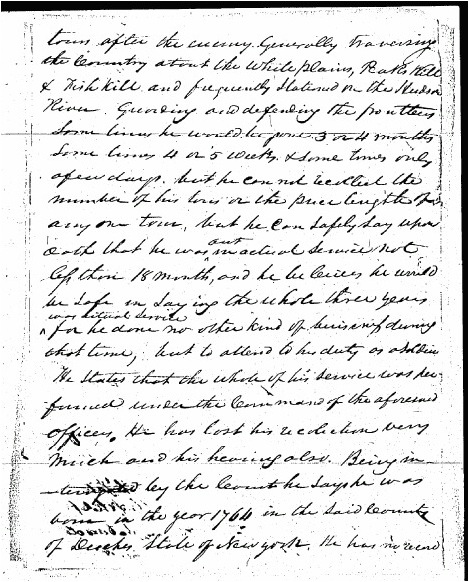 tours, after the enemy. Generally traversing
the Country about the White plains, Peeks Kill
& Fish Kill, and frequently Stationed on the Hudson
River. Guarding and defending the frontiers
Some times he would be gone 3 or 4 months
Some times 4 or 5 weeks. & Some times only
a few days. but he can not recollect the
number of his tours or the precise length of
any one tour, but he can safely say upon
oath that he was out in actual Service not
less than 18 month, and he believes he would
be safe in saying the whole three years
was actual service
^ for he done no other kind of business during
that time, but to attend to his duty as a soldier
He States that the whole of his Service was per-
formed under the Command of the aforesaid
officers. He has lost his recolection very
much and his hearing also. Being in-
by the Court he says he was
born in the year 1764 in the said County
of Duches State of New york. He has no record